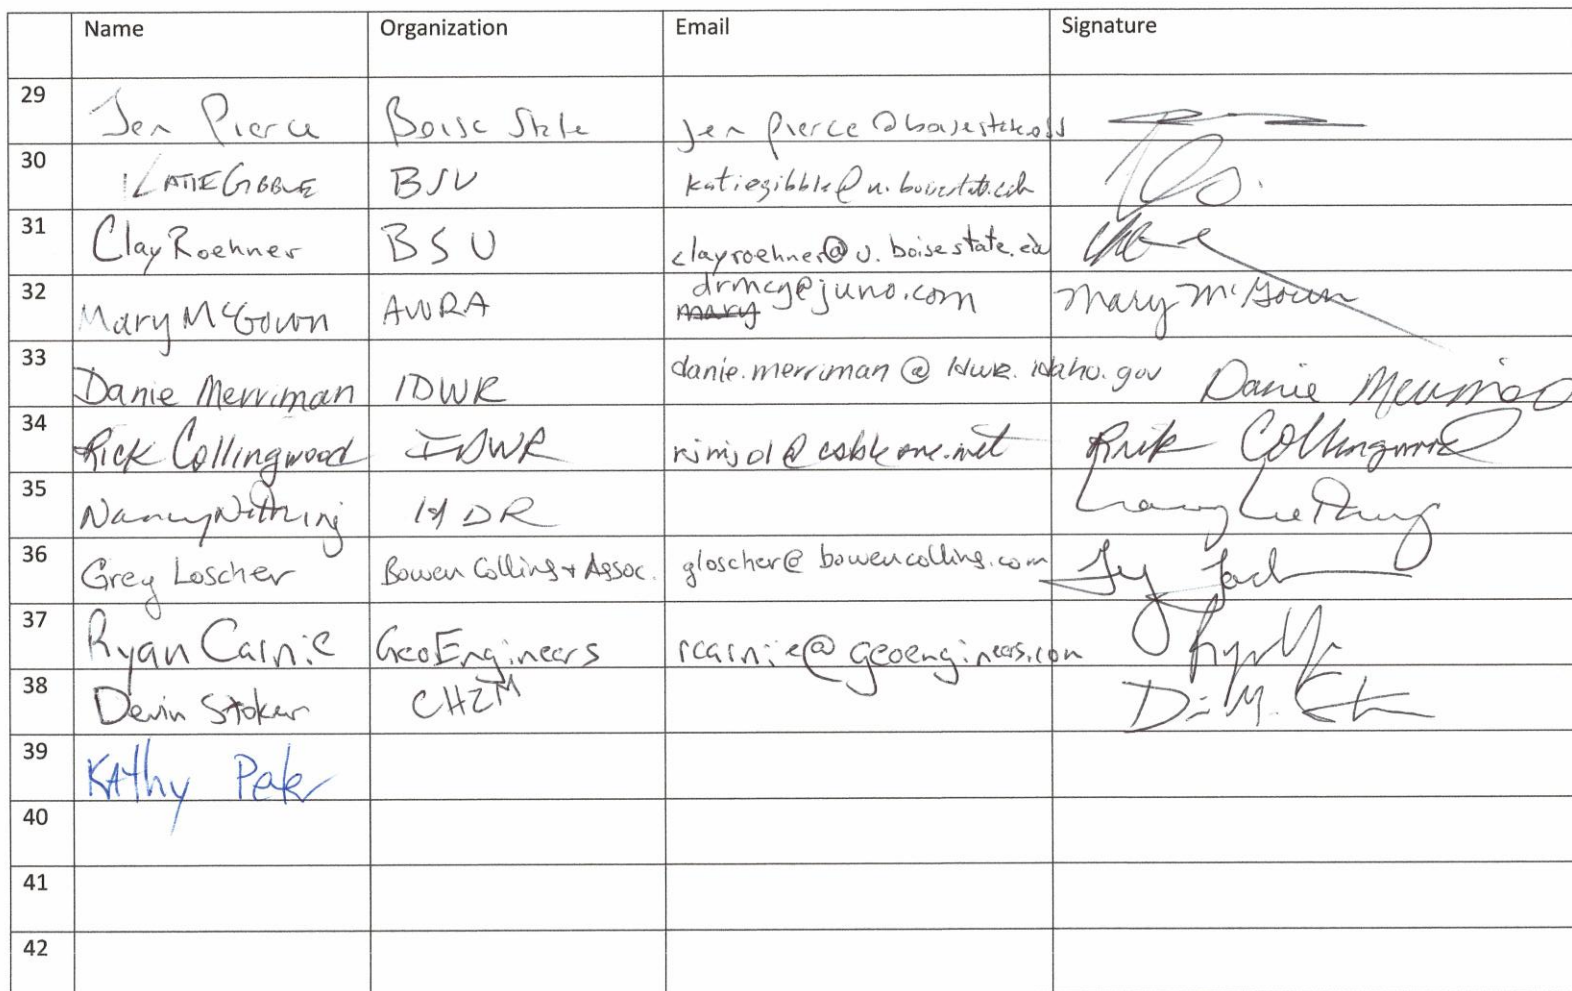 Name Organization Email Signature
29 Jen Pierce Boise State
30 KATIE GIBBLE BSU katiegibble@u.boisestate.edu
31 Clay Roehner BSU clayroehner@u.boisestate.edu
32 Mary McGown AWRA drmcg@juno.com Mary McGown
mary
33 Danie Merriman IDWR danie.merriman@idwr.idaho.gov Danie Merriman
34 Rick Collingwood IDWR Rick Collingwood
35 Nancy HDR
36 Greg Loscher Bowen Collins + Assoc. gloscher@bowencollins.com
37 Ryan Carnie GeoEngineers rcarnie@geoengineers.com
38 Devin Stoker CH2M
39 KAthy
40
41
42